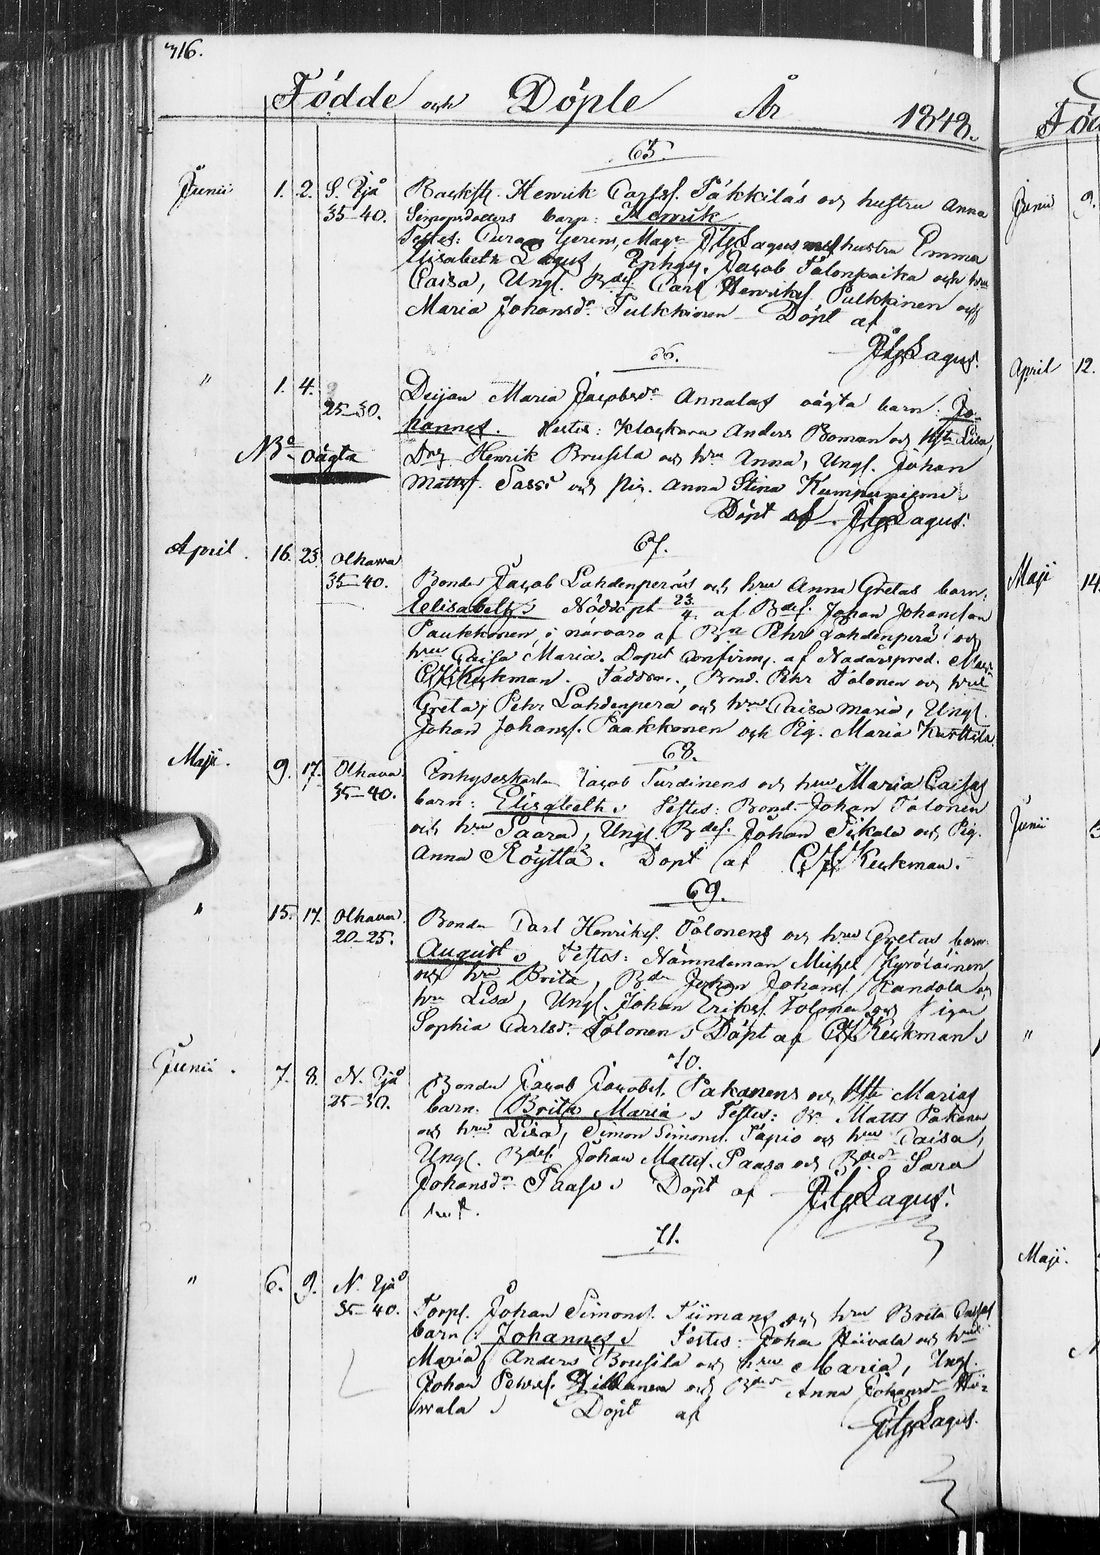 316.
Födde och Döpte År 1848.
65.
Junii 1. 2. S. Ijå Backst. Henrik Carlss. Täkkiläs och hustru Anna
35-40. Sigfridsdotters barn: Henrik
Testes: Lagus hustru Emma
Elisabeth Lagus, Inhys. Jacob Talonpoika och hru
Caisa, Ungl. Bdes. Carl Henrikss. Pulkkinen och
Maria Johansdr Pulkkinen Döpt af
Lagus.
66.
" 1. 4. Deijan Maria Jacobsdr Annalas oägta barn: Jo-
25-30. hannes. Testes: Klockare Anders Boman och Hst. Lisa,
NB. oägta Henrik Brusila och hru Anna, Ungl. Johan
Mattss. Sassi och Pig. Anna Stina Kumpumiemi
Döpt af Lagus.
67.
April. 16. 23. Olhawa
35-40. Bonden Jacob Lohdenperäs och hru Anna Gretas barn:
Elisabeth. Nöddöpt 23/4 af Bdes. Johan Johansson
Paukkonen i närvaro af Bn Pehr Lohdenperä och
hru Caisa Maria. Dopet confirm. af Nådårspred. Mag.
Keckman. Faddrar: Bond. Pehr Tolonen och hru
Greta, Pehr Lohdenperä och hru Caisa Maria, Ungl.
Johan Johanss. Paakkonen och Pig. Maria Kurttila
68.
Maji. 9. 17. Olhava Inhyseskarln Jacob Turdinens och hru Maria Caisas
35-40. barn: Elisabeth. Testes: Bond. Johan Tolonen
och hru Saara, Ungl. Bdes. Johan Sikala och Pig.
Anna Röyttä. Döpt af Keckman.
69.
" 15. 17. Olhava Bonden Carl Henrikss. Tolonens och hru Gretas barn:
20-25. August. Testes: Nämndeman Michel Kyröläinen
och hru Brita, Bdn Johan Johanss. Kandola och
hru Lisa, Ungl. Johan Erikss. Tolonen och Pigan
Sophia Carlsdr Tolonen. Döpt af Keckman.
70.
Junii. 7. 8. N. Ijå Bonden Jacob Jacobss. Pakanens och Hst. Marias
25-30. barn: Brita Maria. Testes: Bn Matts Pakanen
och hru Lisa, Simon Simonss. Tapio och hru Caisa,
Ungl. Bdes. Johan Mattss. Paaso och Bdedr Sara
Johansdr Paaso. Döpt af Lagus.
71.
" 6. 9. N. Ijå
35-40. Torp. Johan Simonss. Tiimans och hru Brita Caisas
barn: Johannes. Testes: Johan Hiivala och hru
Maria, Anders Brusila och hru Maria, Ungl.
Johan Pehrss. och Bdedr Anna Johansdr Hii-
wala. Döpt af
Lagus.
Föd
Junii 9.
April 12.
Maji 14.
Junii
"
Maji.